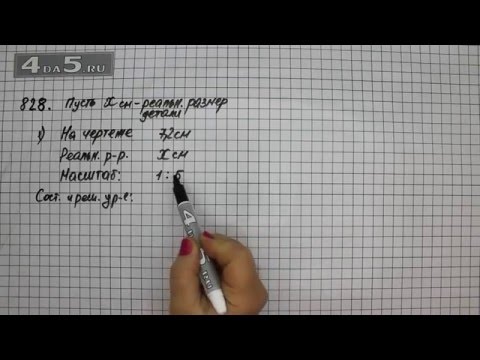 4DA5.RU
828. Пусть X см - реальн. размер
детали
1) На чертеже 7,2 см
Реальн. р-р. X см
Масштаб: 1 : 5
Сост. и реш. ур-е:
4